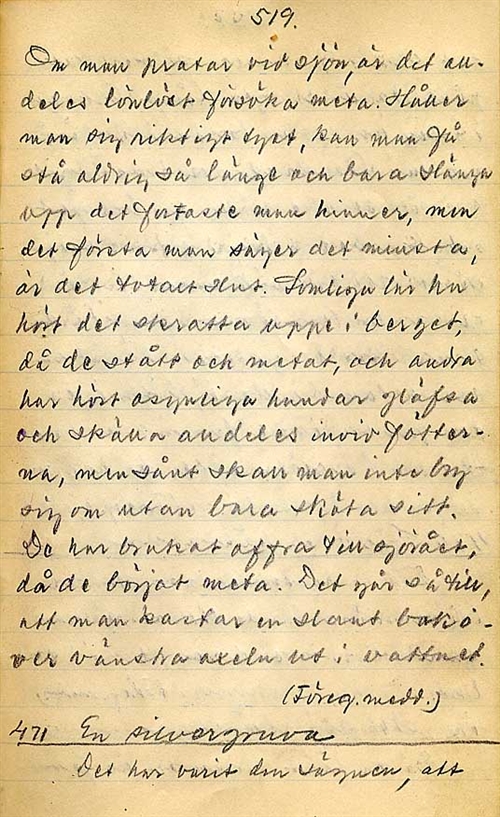 519.
Om man pratar vid sjön, är det all-
deles lönlöst försöka meta. Håller
man sig riktigt tyst, kan man få
stå aldrig så länge och bara slänga
upp det fortaste man hinner, men
det första man säger det minsta,
är det totalt slut. Somliga lär ha
hört det skratta uppe i berget,
då de stått och metat, och andra
har hört osynliga hundar gläfsa
och skälla alldeles invid fötter-
na, men sånt skall man inte bry
sig om utan bara sköta sitt.
De har brukat offra till sjörået,
då de börjat meta. Det går så till,
att man kastar en slant bakö-
ver vänstra axeln ut i vattnet.
(Föreg. medd.)
471 En silvergruva
Det har varit den sägnen, att